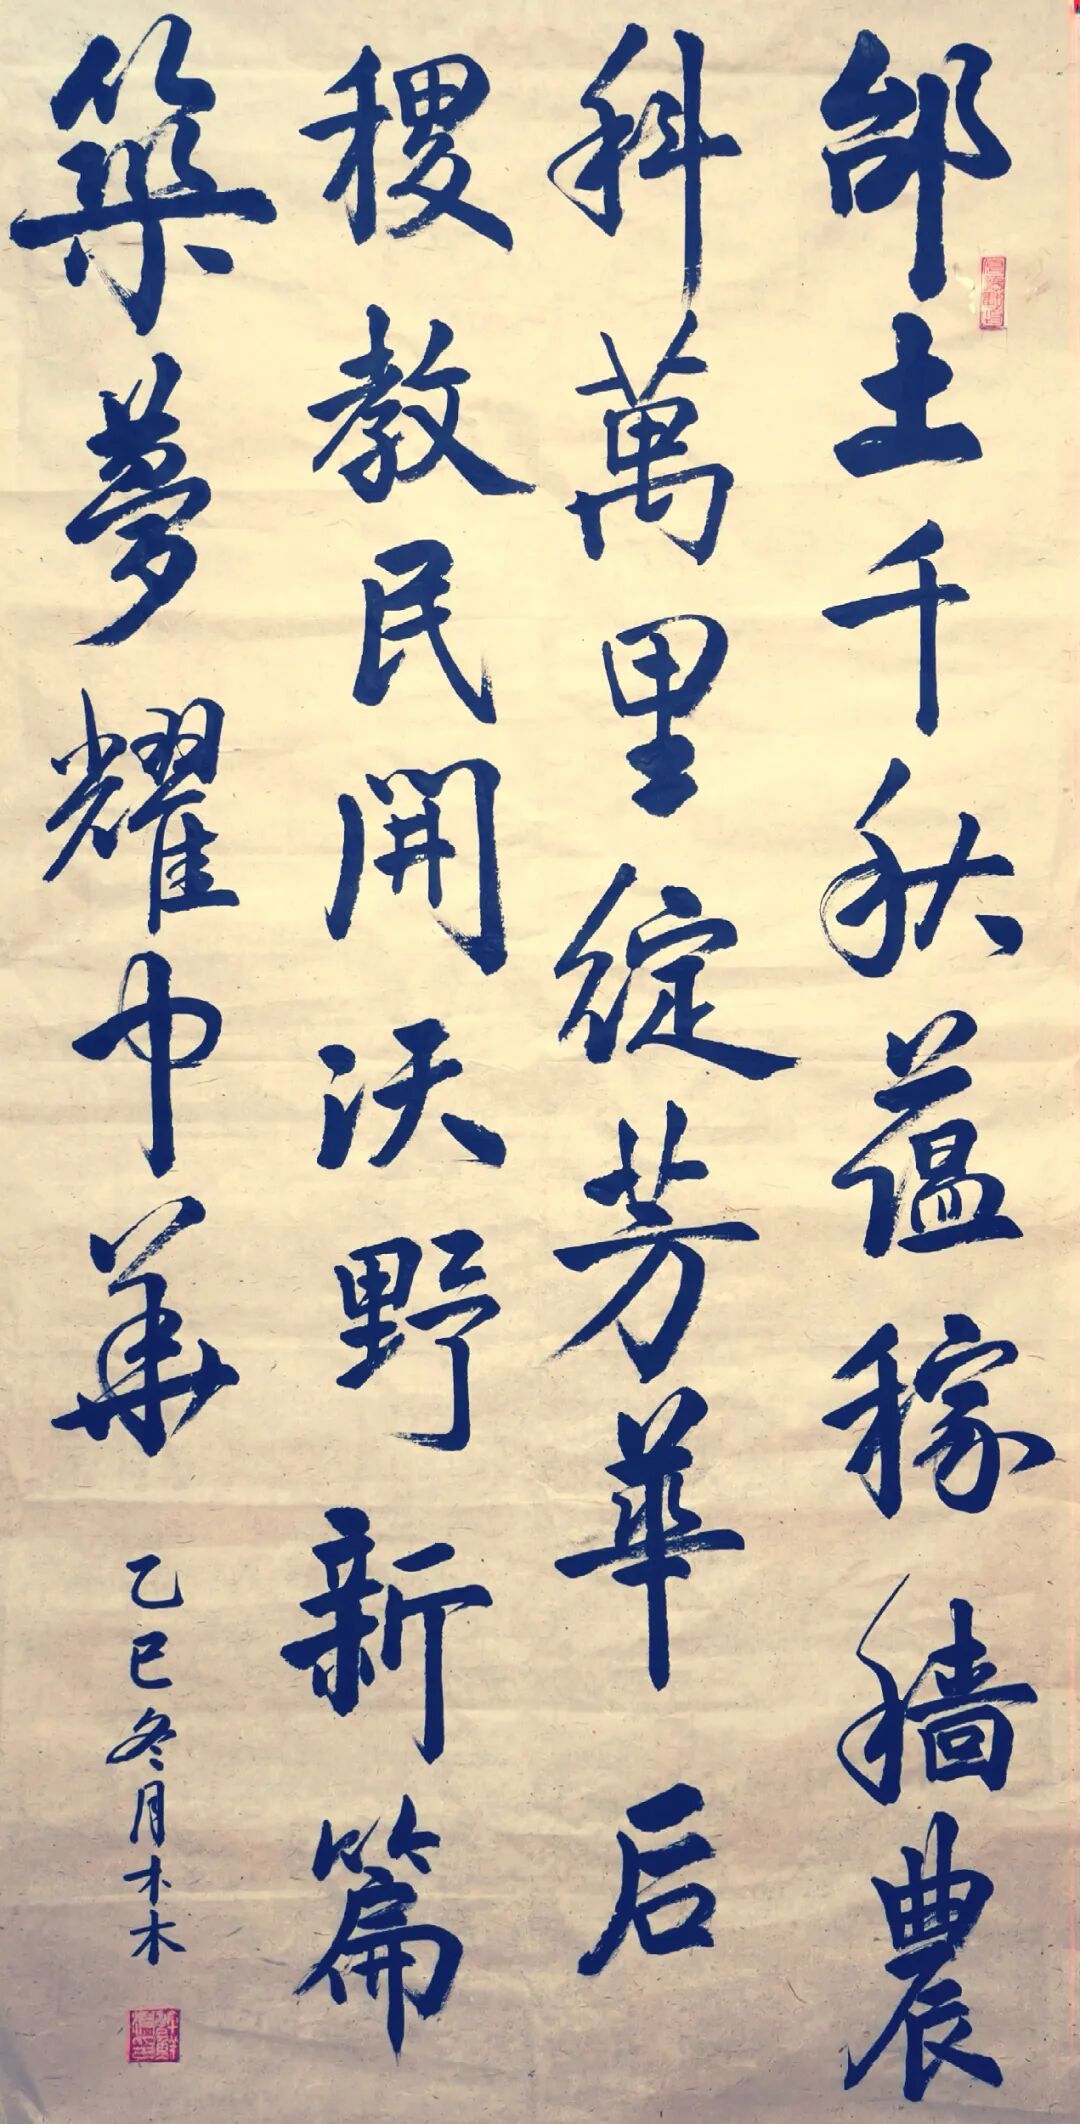 邰土千秋蕴稼穑農
科萬里綻芳華后
稷教民開沃野新篇
築夢耀中華
乙巳冬月木木